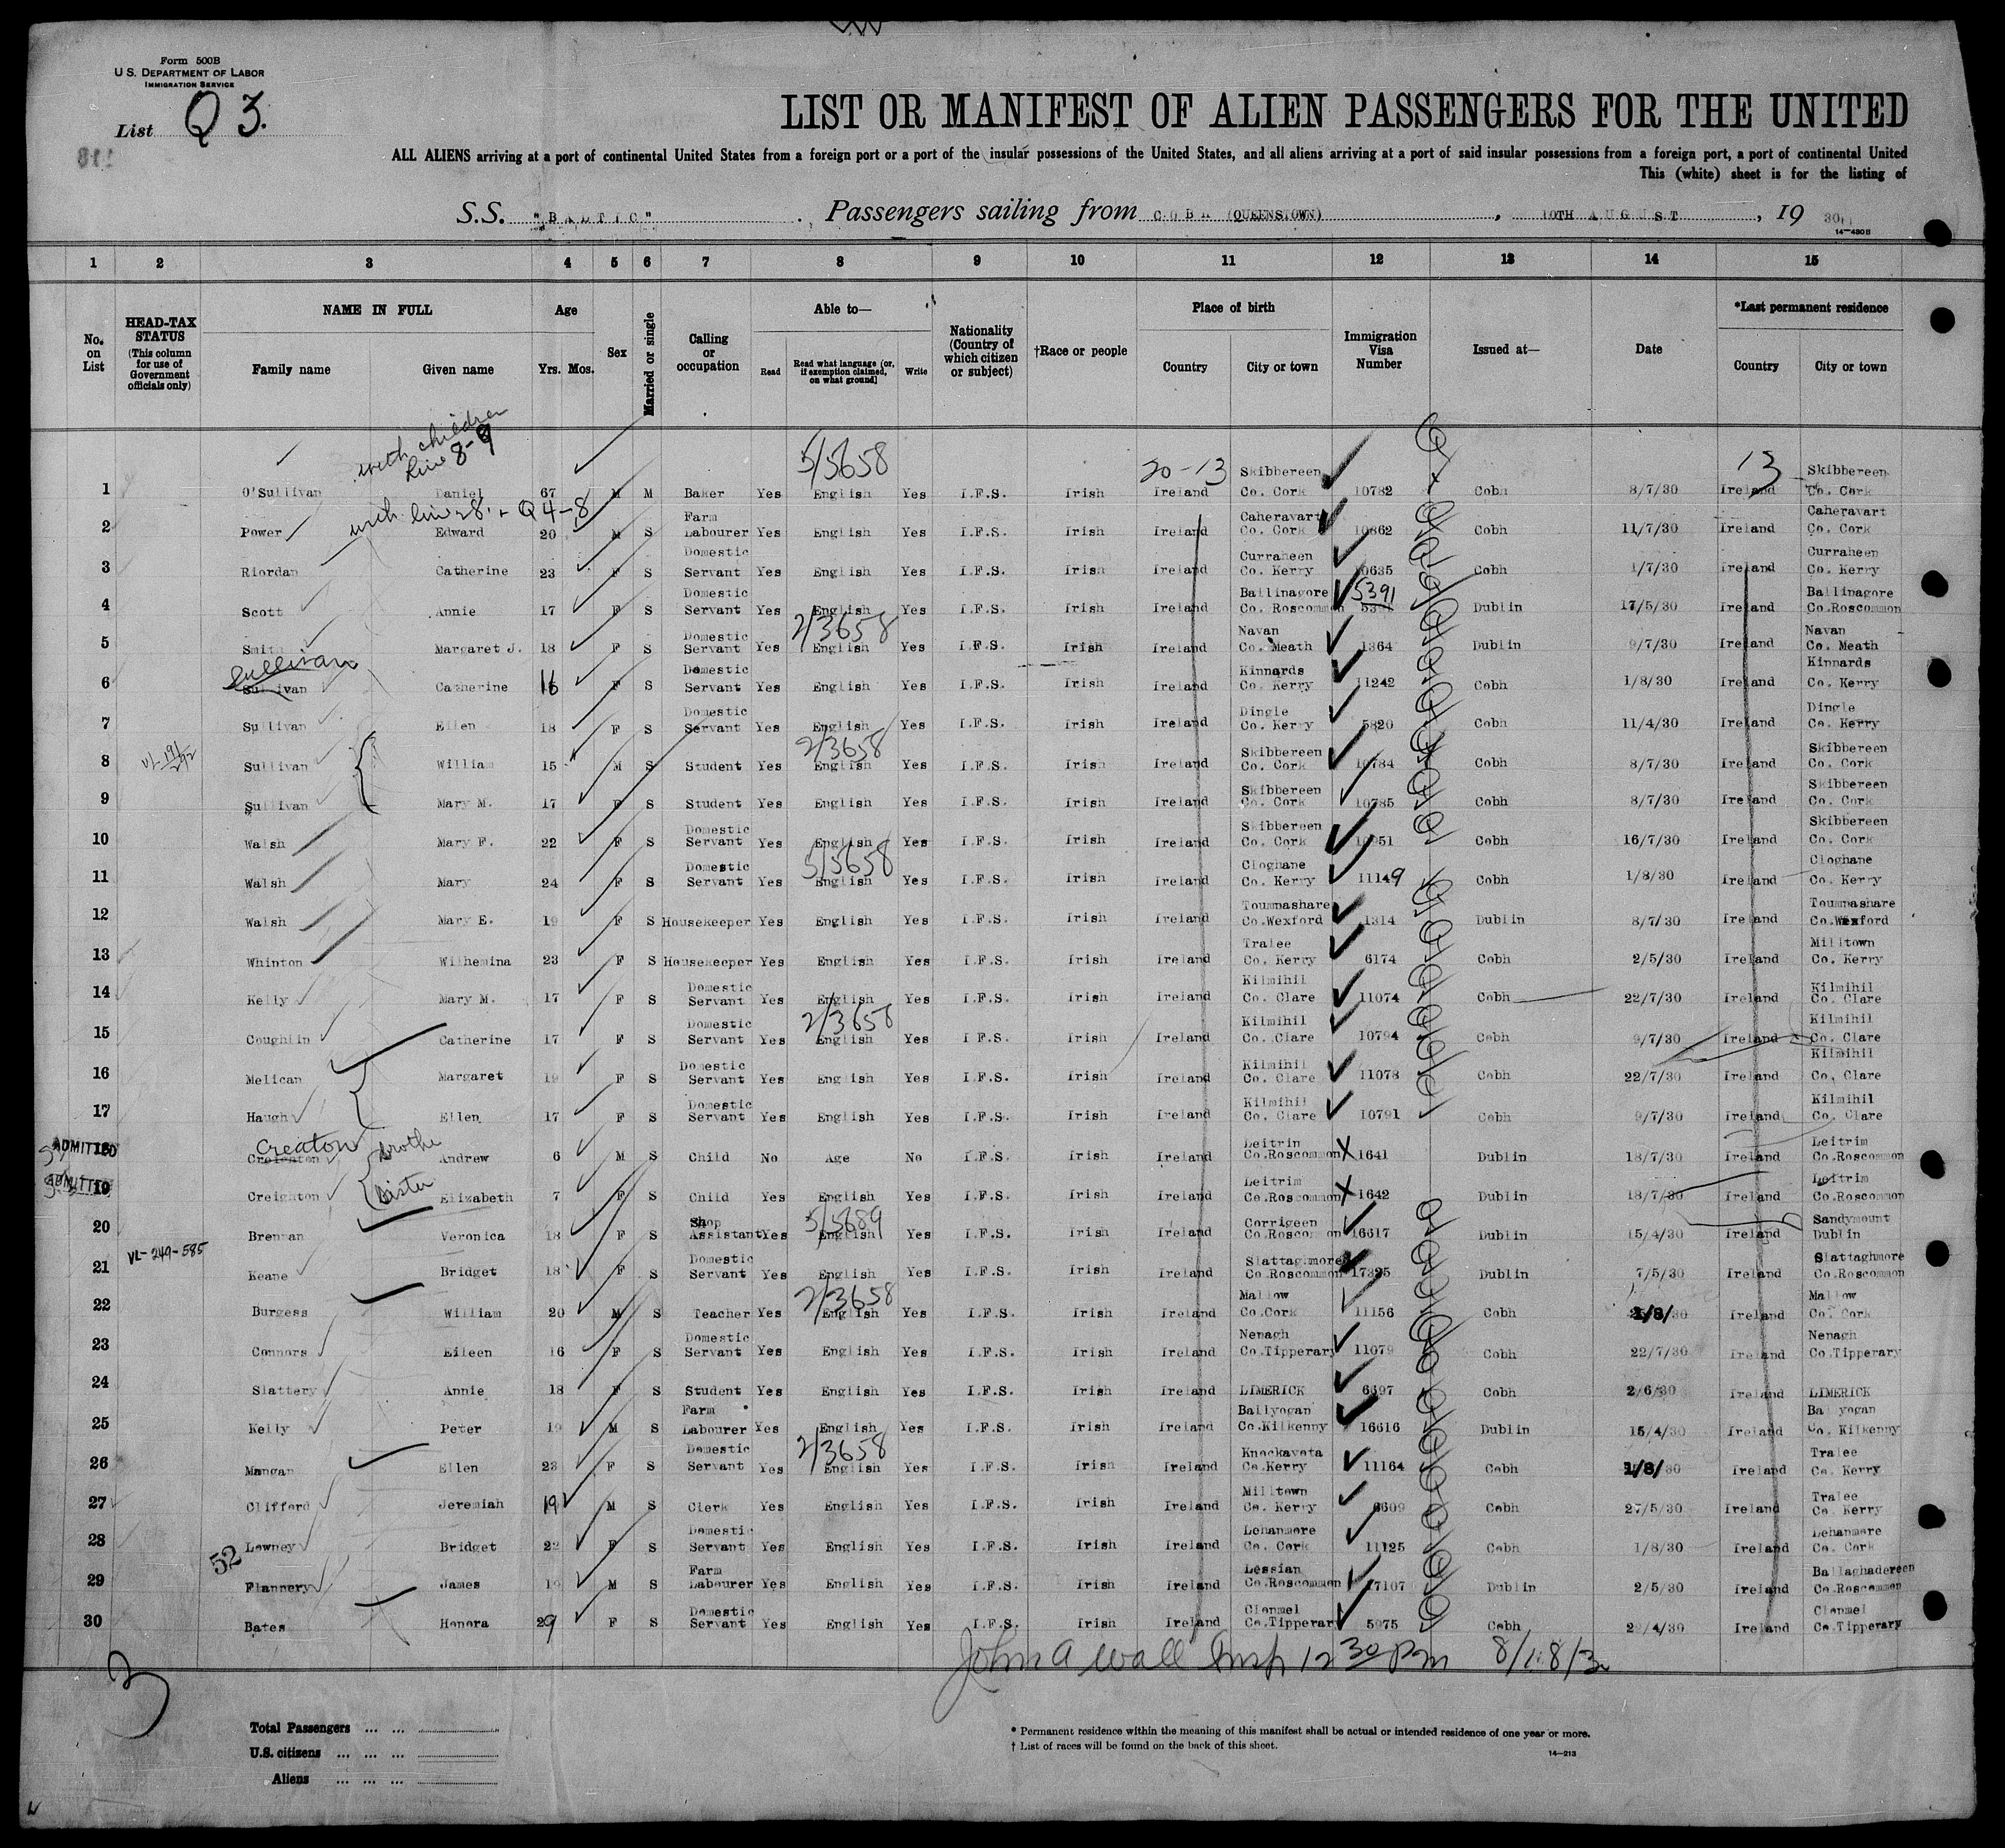 Form 500B
U.S. DEPARTMENT OF LABOR
IMMIGRATION SERVICE
List Q 3.
118
LIST OR MANIFEST OF ALIEN PASSENGERS FOR THE UNITED
ALL ALIENS arriving at a port of continental United States from a foreign port or a port of the insular possessions of the United States, and all aliens arriving at a port of said insular possessions from a foreign port, a port of continental United
This (white) sheet is for the listing of
S.S. "BALTIC". Passengers sailing from COBH (QUEENSTOWN), 10TH AUGUST, 19 30
14-430B
1 2 3 4 5 6 7 8 9 10 11 12 13 14 15
No. on List
HEAD-TAX STATUS (This column for use of Government officials only)
NAME IN FULL
Family name Given name
Age
Yrs. Mos.
Sex
Married or single
Calling or occupation
Able to—
Read Read what language (or, if exemption claimed, on what ground) Write
Nationality (Country of which citizen or subject)
†Race or people
Place of birth
Country City or town
Immigration Visa Number
Issued at—
Date
*Last permanent residence
Country City or town
with children
line 8-9
5/5658 20-13 13
1 O'Sullivan Daniel 67 M M Baker Yes English Yes I.F.S. Irish Ireland Skibbereen Co. Cork 10782 Cobh 8/7/30 Ireland Skibbereen Co. Cork
with line 8 Q4-8
2 Power Edward 20 M S Farm Labourer Yes English Yes I.F.S. Irish Ireland Caheravart Co. Cork 10862 Cobh 11/7/30 Ireland Caheravart Co. Cork
3 Riordan Catherine 23 F S Domestic Servant Yes English Yes I.F.S. Irish Ireland Curraheen Co. Kerry 10635 Cobh 1/7/30 Ireland Curraheen Co. Kerry
4 Scott Annie 17 F S Domestic Servant Yes English Yes I.F.S. Irish Ireland Ballinagore Co. Roscommon 5391 Dublin 17/5/30 Ireland Ballinagore Co.Roscommon
2/3658
5 Smith Margaret J. 18 F S Domestic Servant Yes English Yes I.F.S. Irish Ireland Navan Co. Meath 1364 Dublin 9/7/30 Ireland Navan Co. Meath
Sullivan
6 Sullivan Catherine 16 F S Domestic Servant Yes English Yes I.F.S. Irish Ireland Kinnards Co. Kerry 11242 Cobh 1/8/30 Ireland Kinnards Co. Kerry
7 Sullivan Ellen 18 F S Domestic Servant Yes English Yes I.F.S. Irish Ireland Dingle Co. Kerry 5820 Cobh 11/4/30 Ireland Dingle Co. Kerry
2/3658
8 Sullivan William 15 M S Student Yes English Yes I.F.S. Irish Ireland Skibbereen Co. Cork 10784 Cobh 8/7/30 Ireland Skibbereen Co. Cork
9 Sullivan Mary M. 17 F S Student Yes English Yes I.F.S. Irish Ireland Skibbereen Co. Cork 10785 Cobh 8/7/30 Ireland Skibbereen Co. Cork
10 Walsh Mary F. 22 F S Domestic Servant Yes English Yes I.F.S. Irish Ireland Skibbereen Co. Cork Cobh 16/7/30 Ireland Skibbereen Co. Cork
5/5658
11 Walsh Mary 24 F S Domestic Servant Yes English Yes I.F.S. Irish Ireland Cloghane Co. Kerry 11149 Cobh 1/8/30 Ireland Cloghane Co. Kerry
12 Walsh Mary E. 19 F S Housekeeper Yes English Yes I.F.S. Irish Ireland Toumnashare Co.Wexford 1314 Dublin 8/7/30 Ireland Toumnashare Co.Wexford
13 Whinton Wilhemina 23 F S Housekeeper Yes English Yes I.F.S. Irish Ireland Tralee Co. Kerry 6174 Cobh 2/5/30 Ireland Milltown Co. Kerry
14 Kelly Mary M. 17 F S Domestic Servant Yes English Yes I.F.S. Irish Ireland Kilmihil Co. Clare 11074 Cobh 22/7/30 Ireland Kilmihil Co. Clare
2/3658
15 Coughlin Catherine 17 F S Domestic Servant Yes English Yes I.F.S. Irish Ireland Kilmihil Co. Clare 10794 Cobh 9/7/30 Ireland Kilmihil Co. Clare
16 Melican Margaret 19 F S Domestic Servant Yes English Yes I.F.S. Irish Ireland Kilmihil Co. Clare 11078 Cobh 22/7/30 Ireland Kilmihil Co. Clare
17 Haugh Ellen 17 F S Domestic Servant Yes English Yes I.F.S. Irish Ireland Kilmihil Co. Clare 10791 Cobh 9/7/30 Ireland Kilmihil Co. Clare
ADMITTED Creaton brother
18 Creighton Andrew 6 M S Child No Age No I.F.S. Irish Ireland Leitrim Co.Roscommon 1641 Dublin 18/7/30 Ireland Leitrim Co.Roscommon
ADMITTED sister
19 Creighton Elizabeth 7 F S Child Yes English Yes I.F.S. Irish Ireland Leitrim Co.Roscommon 1642 Dublin 18/7/30 Ireland Leitrim Co.Roscommon
5/5689
20 Brennan Veronica 18 F S Shop Assistant Yes English Yes I.F.S. Irish Ireland Corrigeen Co.Roscommon 16617 Dublin 15/4/30 Ireland Sandymount Dublin
VL-249-585
21 Keane Bridget 18 F S Domestic Servant Yes English Yes I.F.S. Irish Ireland Slattagmore Co.Roscommon 17395 Dublin 7/5/30 Ireland Slattaghmore Co.Roscommon
2/3658
22 Burgess William 20 M S Teacher Yes English Yes I.F.S. Irish Ireland Mallow Co.Cork 11156 Cobh 1/8/30 Ireland Mallow Co. Cork
23 Connors Eileen 16 F S Domestic Servant Yes English Yes I.F.S. Irish Ireland Nenagh Co.Tipperary 11079 Cobh 22/7/30 Ireland Nenagh Co.Tipperary
24 Slattery Annie 18 F S Student Yes English Yes I.F.S. Irish Ireland LIMERICK 6697 Cobh 2/6/30 Ireland LIMERICK
25 Kelly Peter 19 M S Farm Labourer Yes English Yes I.F.S. Irish Ireland Ballyogan Co.Kilkenny 16616 Dublin 15/4/30 Ireland Ballyogan Co. Kilkenny
2/3658
26 Mangan Ellen 23 F S Domestic Servant Yes English Yes I.F.S. Irish Ireland Knockavota Co.Kerry 11164 Cobh 1/8/30 Ireland Tralee Co. Kerry
27 Clifford Jeremiah 19 M S Clerk Yes English Yes I.F.S. Irish Ireland Milltown Co. Kerry 6609 Cobh 27/5/30 Ireland Tralee Co. Kerry
28 Lowney Bridget 22 F S Domestic Servant Yes English Yes I.F.S. Irish Ireland Lehanmore Co. Cork 11125 Cobh 1/8/30 Ireland Lehanmore Co. Cork
52
29 Flannery James 19 M S Farm Labourer Yes English Yes I.F.S. Irish Ireland Lessian Co.Roscommon 17107 Dublin 2/5/30 Ireland Ballaghadereen Co.Roscommon
30 Bates Honora 29 F S Domestic Servant Yes English Yes I.F.S. Irish Ireland Clonmel Co.Tipperary 5975 Cobh 29/4/30 Ireland Clonmel Co.Tipperary
John A Wall Insp 12 30 Pm 8/18/30
3
Total Passengers ... ...
U.S. citizens ... ... ...
Aliens ... ... ...
* Permanent residence within the meaning of this manifest shall be actual or intended residence of one year or more.
† List of races will be found on the back of this sheet.
14-213